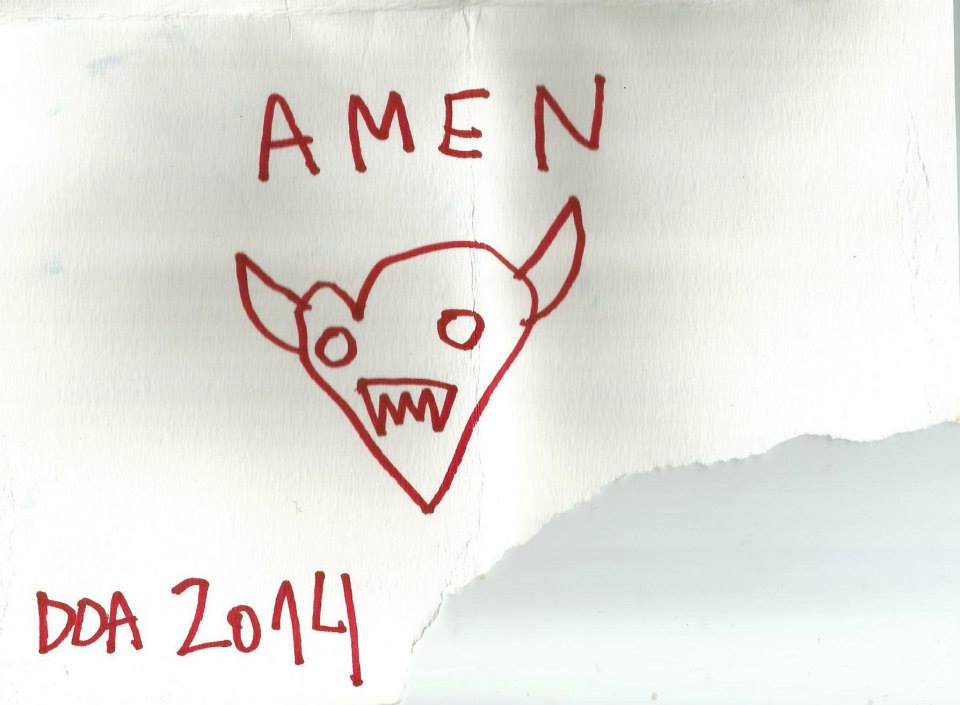 AMEN
DDA 2014